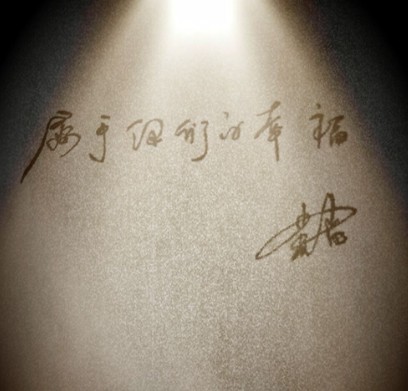 属于们的幸福